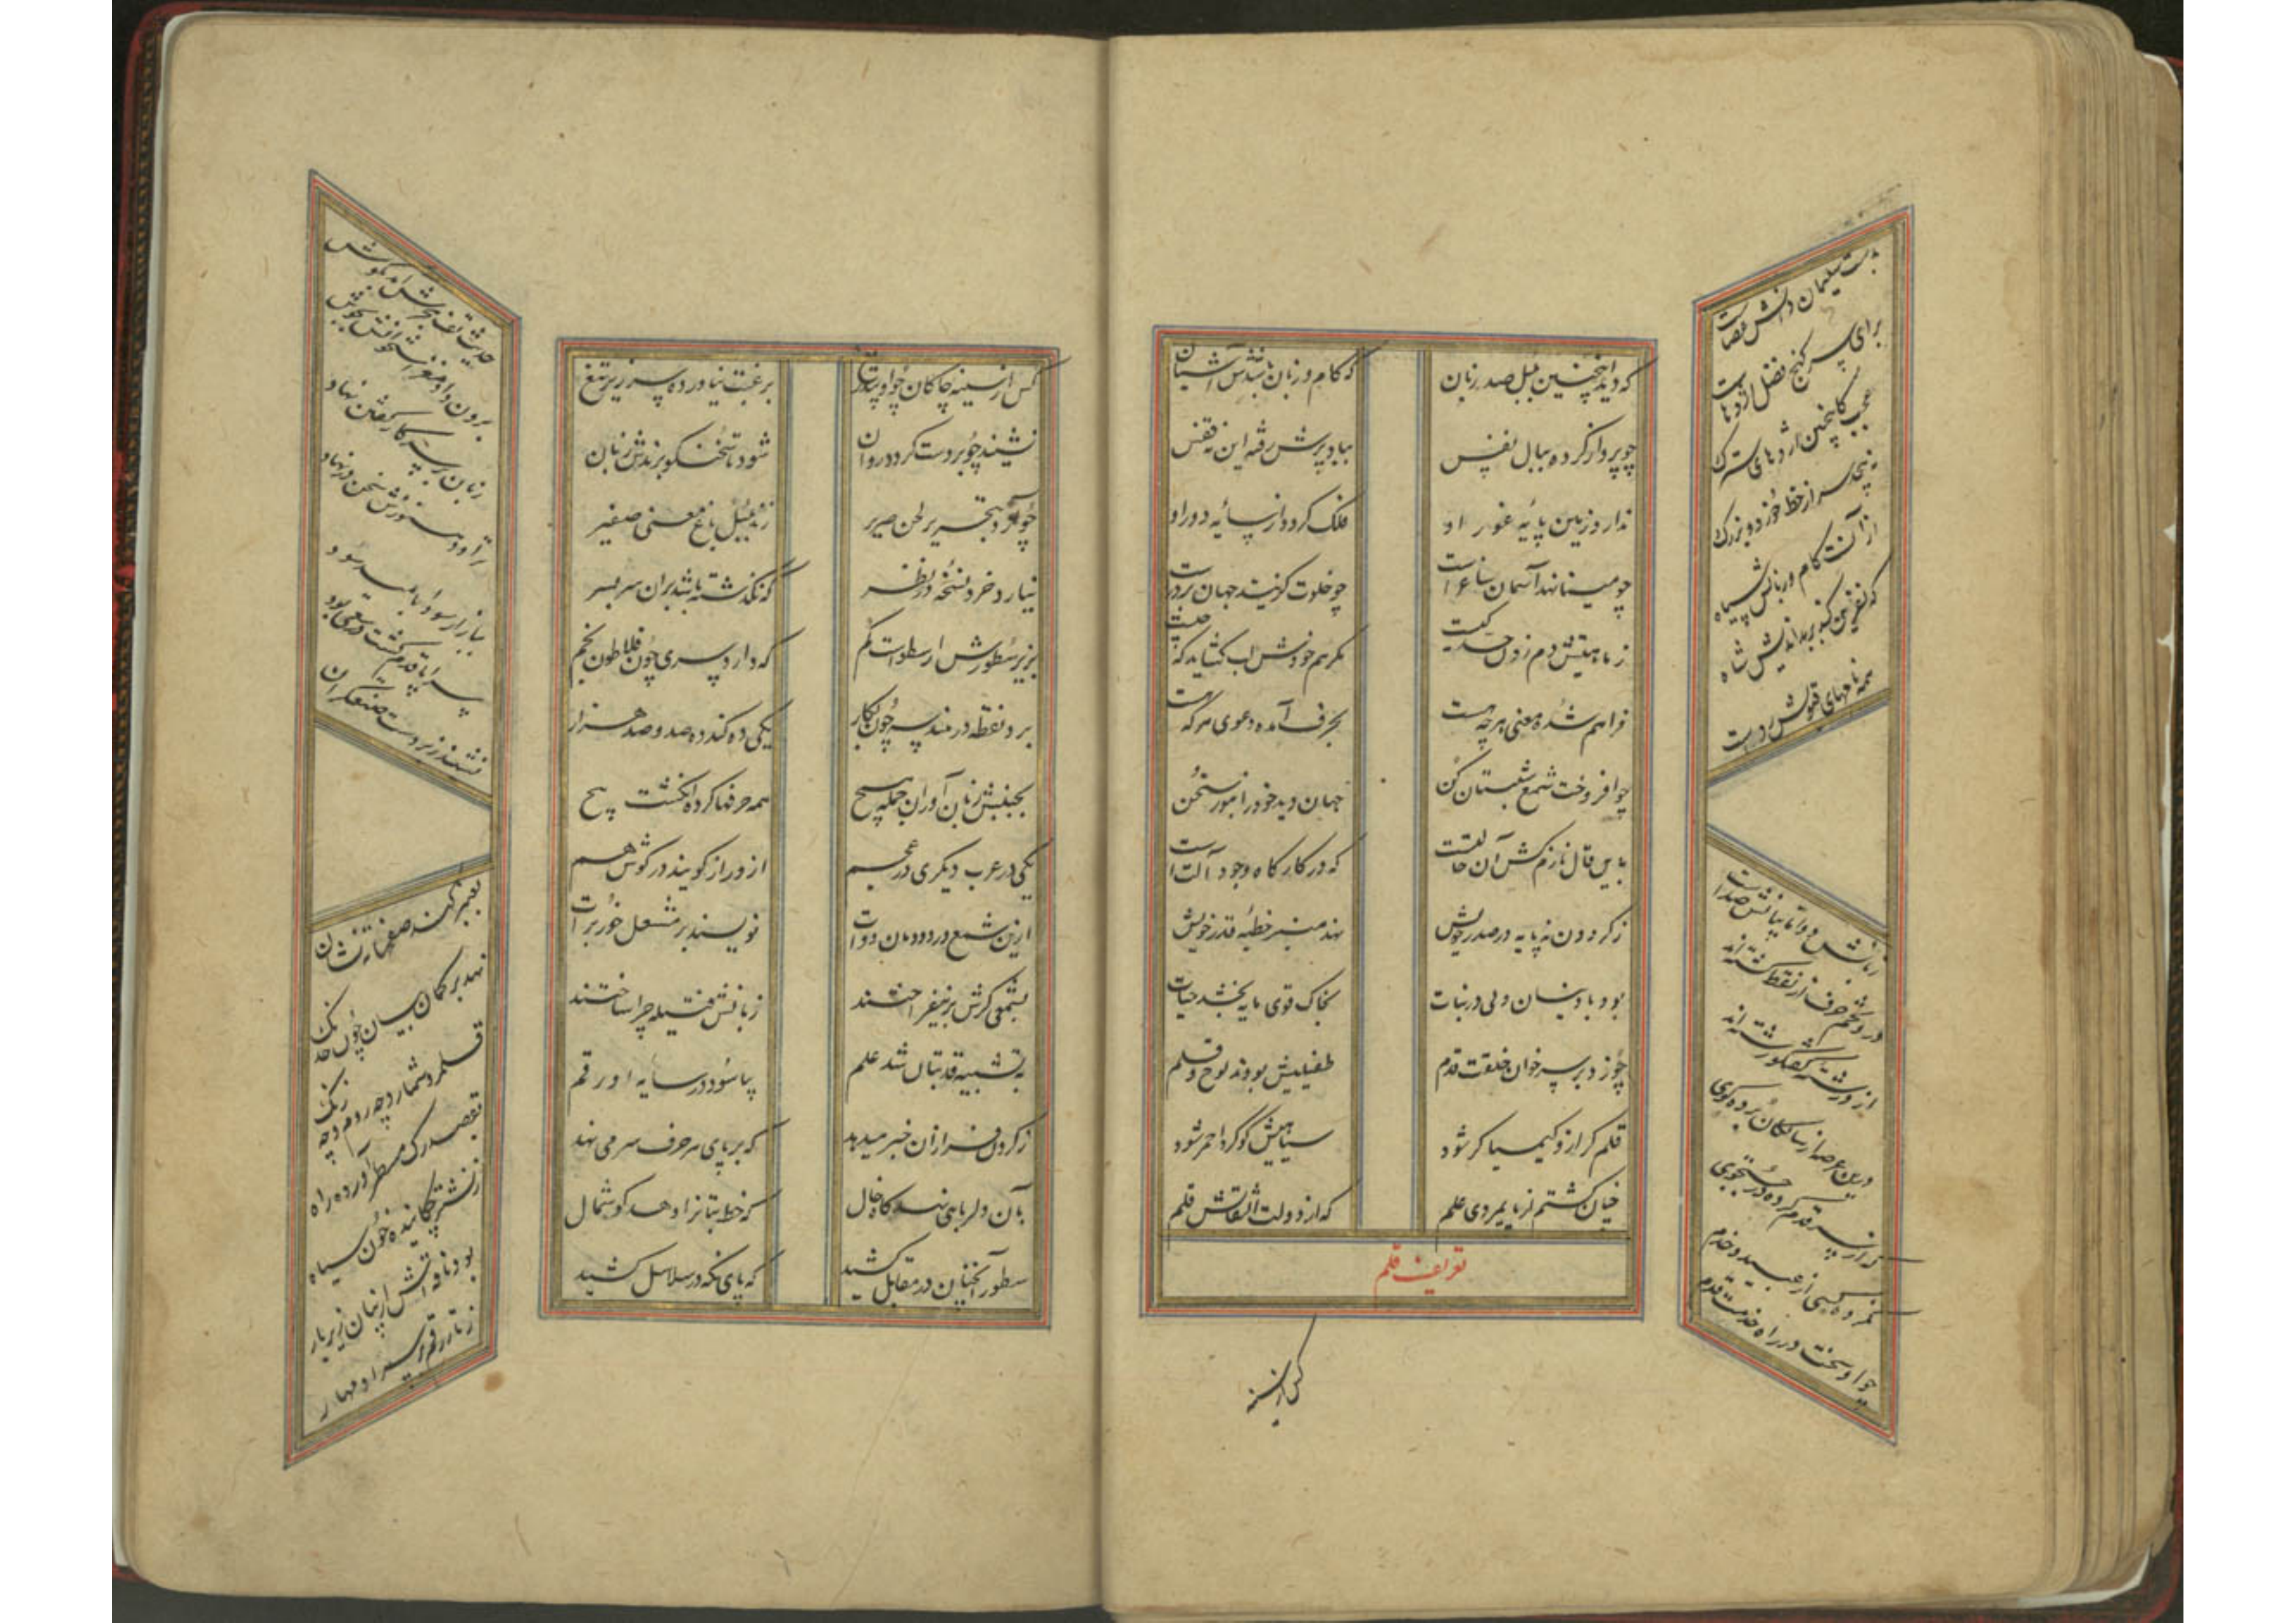 که دید اینچنین بلبل صد زبان
که کام و زبان باشدش آشیان
چو پرواز کرده ببال نفس
بباد پرش رفته این نه قفس
ندارد زمین پایهٔ غور او
فلک گردد از سایهٔ دور او
چو مینا نهد آسمان ساعت
چو خلوت گزیند جهان بردرست
ز ماهیتش دم زدن حد کیست
مگر هم خودش لب گشاید که چیست
فراهم شده معنی هرچه هست
بحرف آمده دعوی هرکه هست
چو افروخت شمع شبستان کن
جهان دید خود را بنور سخن
باین قال نازم کش آن حالتست
که در کارگاه وجود آلت است
ز گردون نه پایه در صدر خویش
نهد منبر خطبهٔ قدر خویش
بود باد نیسان ولی در نبات
بخاک قوی مایه بخشد حیات
چو زد بر سر خوان خلقت قدم
طفیلیش بودند لوح و قلم
قلم گر ازو کیمیا گر شود
سیاهیش گوگرد احمر شود
چنان گشتم از پایمردی علم
که از دولت التفاتش قلم
تعریف قلم
بدست سلیمان دانش عصاست
برای سر گنج فضل اژدهاست
عجب کاینچنین اژدهای سترگ
نپیچد سر از خط خرد و بزرگ
از آنست کام و زبانش سیاه
که نفرین کند بر بداندیش شاه
همه نامهای قبولش درست
زبانش دوتا بیانش صداست
درو تخم حرف از نقط کشته‌اند
ازو رشتهٔ گفتگو رشته‌اند
درین عرصه از سالکان برده گوی
که از سر قدم کرده در جستجوی
نمرده کسی از عبید و خدم
چو او سخت در راه خدمت قدم
کس از سینه
کس از سینه چاکان چو او بیدریغ
برغبت نیاورده سر زیر تیغ
نشیند چو بر دست گردد روان
شود تا سخنگو برندش زبان
چو گردد بتحریر لحن صریر
زند بلبل باغ معنی صفیر
نیارد خرد نسخهٔ در نظر
که نگذشته باشد بران سربسر
بزیر سطورش ارسطوست گم
که دارد سری چون فلاطون بخم
برد نقطه در هندسه چون بکار
یکی ده کند ده صد و صد هزار
بجنبش زبان آوران جمله هیچ
همه حرفها کرده انگشت پیچ
یکی در عرب دیگری در عجم
ازو راز گویند در گوش هم
ازین شمع در دودمان دوات
نویسند بر مشعل خور برات
بشمعی گرش برنیفراختند
زبانش فتیله چرا ساختند
به تشبیه قد بتان شد علم
بیاسود در سایه او رقم
ز گردن فرازان خبر میدهد
که بر پای هر حرف سر می نهد
بآن دلربایی نهد گاه خال
که خط بتان را دهد گوشمال
سطور آنچنان در مقابل کشید
که پای نگه در سلاسل کشید
حدیث تف
برون داد مغز استخوانش بجوش
زبان بر سر کار گفتن نهاد
ببازار سودا
سراپا قدم گشت در سعی بود
نشیند زبردست صفدران
نهد بر کمان بیان چون خدنگ
قلمرو شمارد چه روم و چه زنگ
بقصد رگ مسطر آورده راه
ز نشتر چکانیده خون سیاه
بود ناقه‌اش از بیان زیر بار
ز تار رقم بر سر او مهار